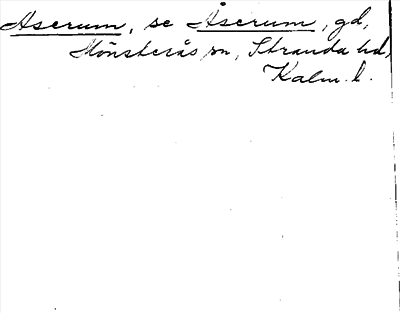 Aserum, se Åserum, gd,
Mönsterås sn, Stranda hd,
Kalm. l.